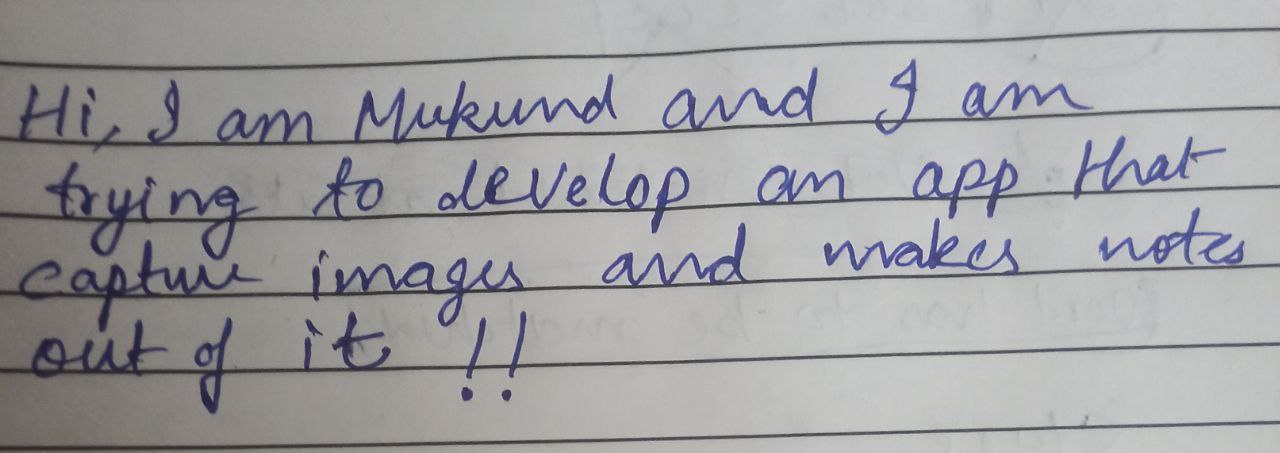 Hi, I am Mukund and I am
trying to develop an app that
capture images and makes notes
out of it !!